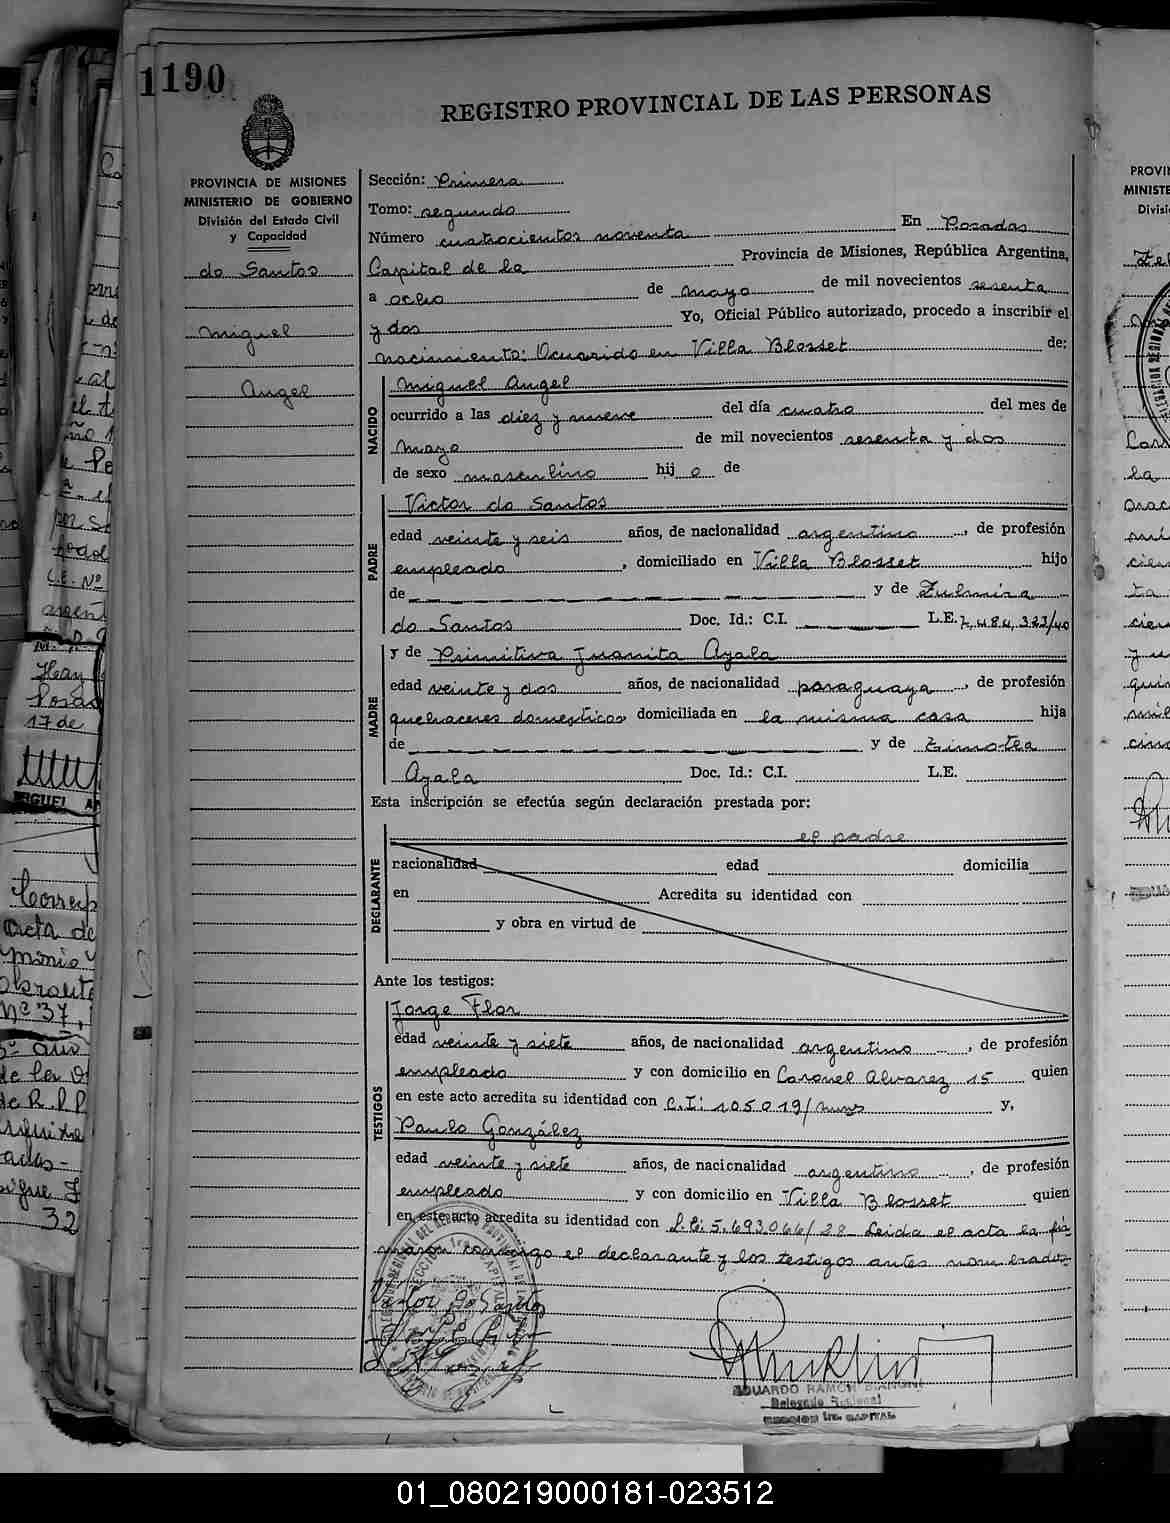 1190
REGISTRO PROVINCIAL DE LAS PERSONAS
PROVINCIA DE MISIONES
MINISTERIO DE GOBIERNO
División del Estado Civil
y Capacidad
do Santos
Miguel
Angel
Sección: Primera
Tomo: segundo
Número cuatrocientos noventa En Posadas
Capital de la Provincia de Misiones, República Argentina,
a ocho de mayo de mil novecientos sesenta
y dos Yo, Oficial Público autorizado, procedo a inscribir el
nacimiento: Ocurrido en Villa Blosset de:
NACIDO
Miguel Angel
ocurrido a las diez y nueve del día cuatro del mes de
mayo de mil novecientos sesenta y dos
de sexo masculino hij o de
PADRE
Victor do Santos
edad veinte y seis años, de nacionalidad argentino, de profesión
empleado, domiciliado en Villa Blosset hijo
de y de Zulmira
do Santos Doc. Id.: C.I. L.E. 7.484.323/40
MADRE
y de Primitiva Juanita Ayala
edad veinte y dos años, de nacionalidad paraguaya, de profesión
quehaceres domesticos domiciliada en la misma casa hija
de y de Timotea
Ayala Doc. Id.: C.I. L.E.
Esta inscripción se efectúa según declaración prestada por:
DECLARANTE
el padre
nacionalidad edad domicilia
en Acredita su identidad con
y obra en virtud de
Ante los testigos:
TESTIGOS
Jorge Flor
edad veinte y siete años, de nacionalidad argentino, de profesión
empleado y con domicilio en Coronel Alvarez 15 quien
en este acto acredita su identidad con C.I: 105019/ y,
Paulo González
edad veinte y siete años, de nacionalidad argentino, de profesión
empleado y con domicilio en Villa Blosset quien
en este acto acredita su identidad con 5.693.066/38 Leida el acta la fir
maron conmigo el declarante y los testigos antes nombrados
Victor Do Santos
EDUARDO RAMON
Delegado Regional
SECCION 1ra. CAPITAL
01_080219000181-023512